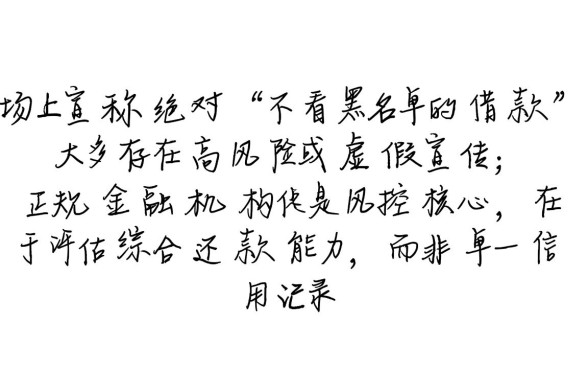 场上宣称绝对“不看黑名单的借款”
大多存在高风险或虚假宣传；
正规金融机构优是风控核心，在
于评估综合还款能力，而非单一信
用记录